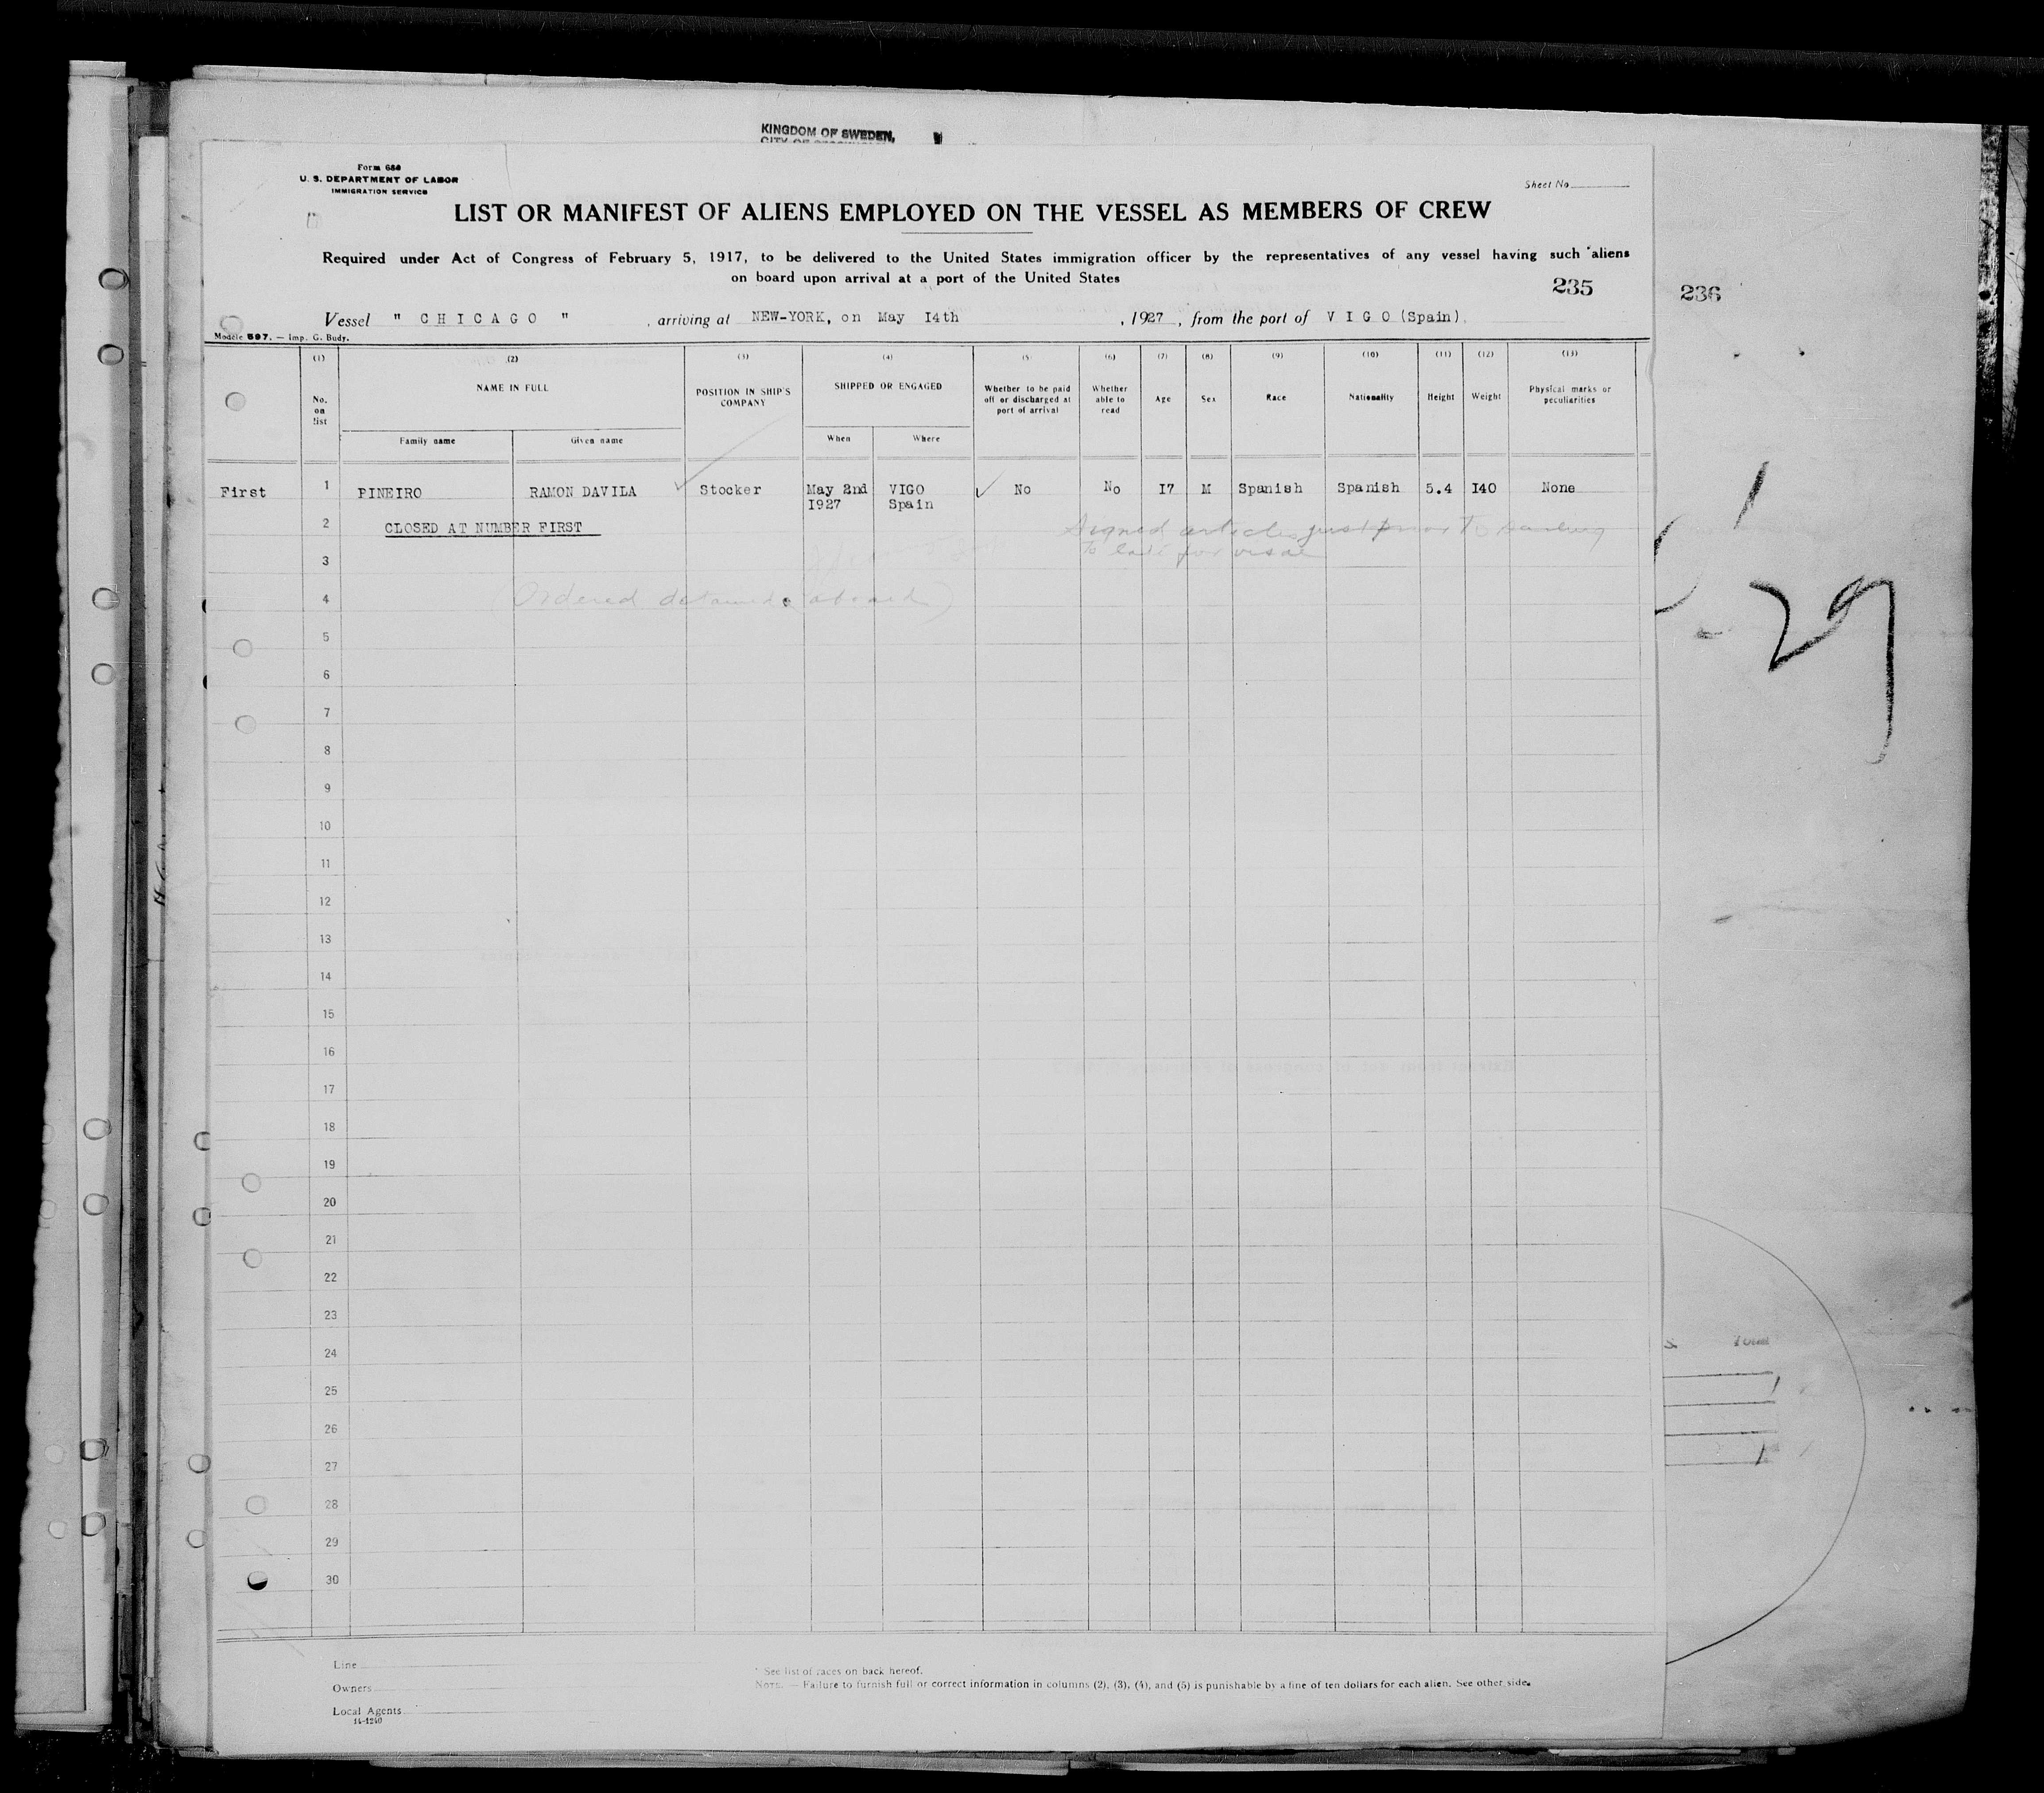 KINGDOM OF SWEDEN,
Form 680
U. S. DEPARTMENT OF LABOR
IMMIGRATION SERVICE
Sheet No
LIST OR MANIFEST OF ALIENS EMPLOYED ON THE VESSEL AS MEMBERS OF CREW
Required under Act of Congress of February 5, 1917, to be delivered to the United States immigration officer by the representatives of any vessel having such aliens
on board upon arrival at a port of the United States
235
236
Vessel " C H I C A G O " , arriving at NEW-YORK, on May I4th , 1927, from the port of V I G O (Spain).
Modèle 597. — Imp. G. Budy.
(1) (2) (3) (4) (5) (6) (7) (8) (9) (10) (11) (12) (13)
No. on list
NAME IN FULL
Family name
Given name
POSITION IN SHIP'S COMPANY
SHIPPED OR ENGAGED
When
Where
Whether to be paid off or discharged at port of arrival
Whether able to read
Age
Sex
Race
Nationality
Height
Weight
Physical marks or peculiarities
First 1 PINEIRO RAMON DAVILA Stocker May 2nd VIGO No No I7 M Spanish Spanish 5.4 I40 None
I927 Spain
2 CLOSED AT NUMBER FIRST Signed articles just prior to sailing
To late for visae
3
4 (Ordered detained aboard)
5
6
7
8
9
10
11
12
13
14
15
16
17
18
19
20
21
22
23
24
25
26
27
28
29
30
29
Total
Line
Owners
Local Agents
14-1240
* See list of races on back hereof.
NOTE. — Failure to furnish full or correct information in columns (2), (3), (4), and (5) is punishable by a fine of ten dollars for each alien. See other side.